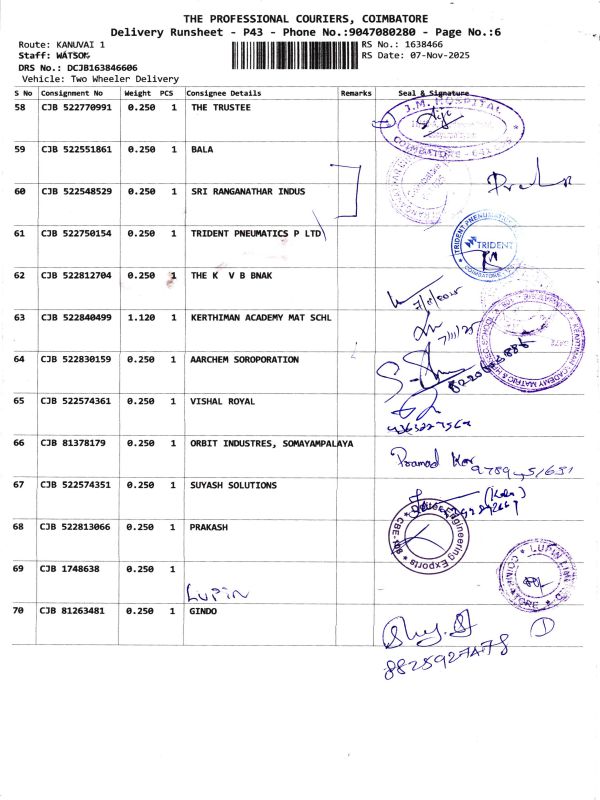 THE PROFESSIONAL COURIERS, COIMBATORE
Delivery Runsheet - P43 - Phone No.:9047080280 - Page No.:6
Route: KANUVAI 1 RS No.: 1638466
Staff: WATSON RS Date: 07-Nov-2025
DRS No.: DCJB163846606
Vehicle: Two Wheeler Delivery
S No Consignment No Weight PCS Consignee Details Remarks Seal & Signature
58 CJB 522770991 0.250 1 THE TRUSTEE
J.M. HOSPITAL
59 CJB 522551861 0.250 1 BALA
60 CJB 522548529 0.250 1 SRI RANGANATHAR INDUS
61 CJB 522750154 0.250 1 TRIDENT PNEUMATICS P LTD
TRIDENT
62 CJB 522812704 0.250 1 THE K V B BNAK
63 CJB 522840499 1.120 1 KERTHIMAN ACADEMY MAT SCHL
7/11/25
64 CJB 522830159 0.250 1 AARCHEM SOROPORATION
65 CJB 522574361 0.250 1 VISHAL ROYAL
66 CJB 81378179 0.250 1 ORBIT INDUSTRES, SOMAYAMPALAYA
Pramod Kor
67 CJB 522574351 0.250 1 SUYASH SOLUTIONS
68 CJB 522813066 0.250 1 PRAKASH
Engineering Exports
69 CJB 1748638 0.250 1
Lupin
LUPIN LIMITED
70 CJB 81263481 0.250 1 GINDO
1
8825927478